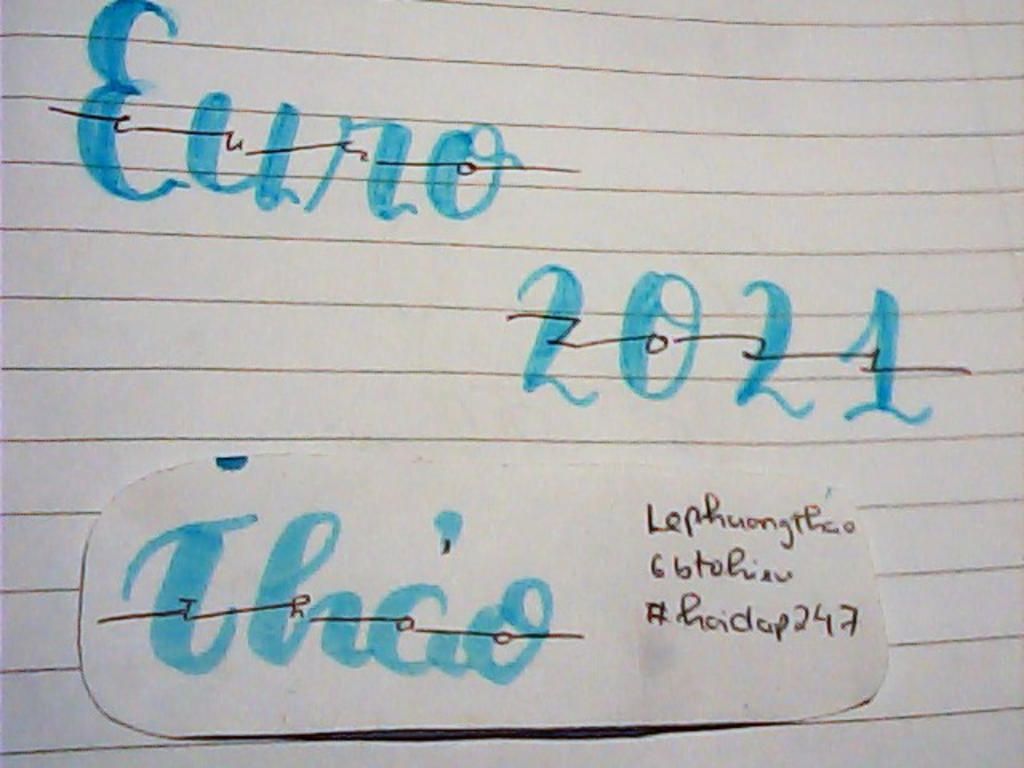 Euro
2021
Thảo
Lephuongthảo
6btohieu
#hoidap247